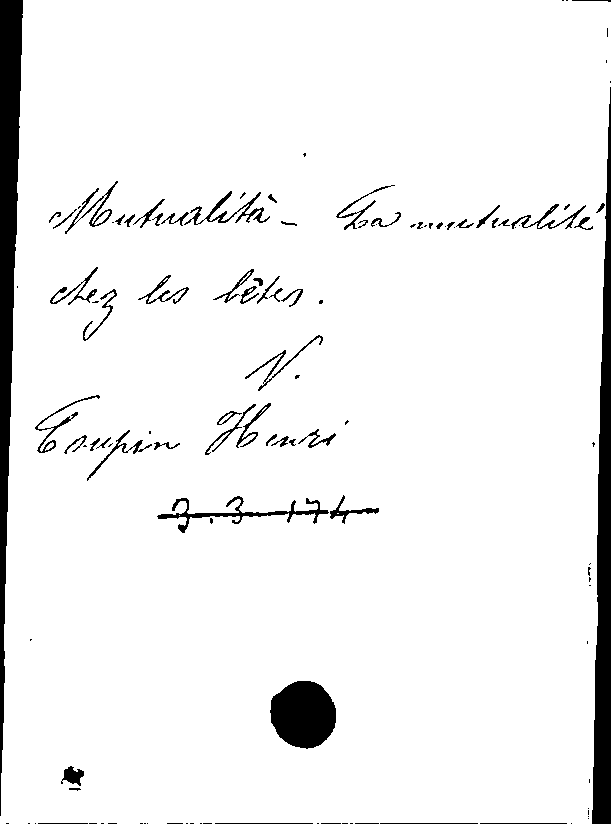 Mutualità - La mutualité
chez les bêtes.
V.
Coupin Henri
3.3 174